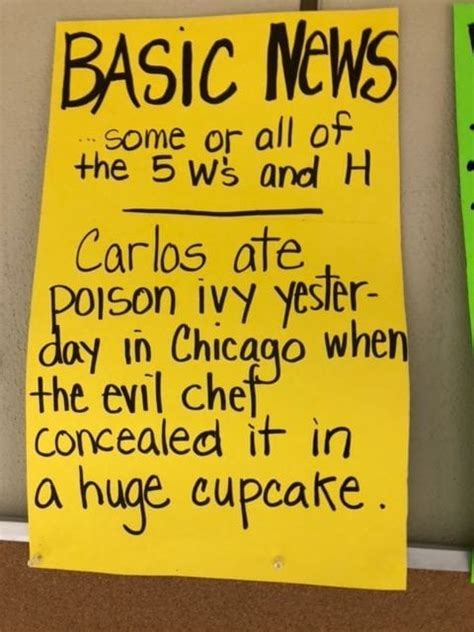 BASIC NEWS
...some or all of
the 5 W's and H
Carlos ate
poison ivy yester-
day in Chicago when
the evil chef
concealed it in
a huge cupcake.